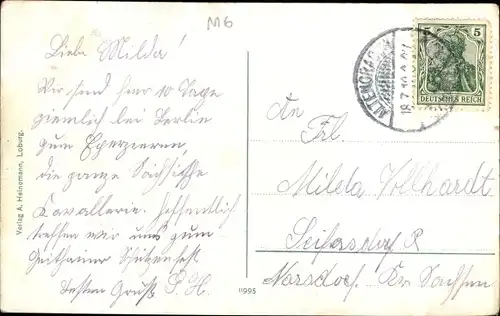 M6
Liebe Milda!
Wir sind hier 10 Tage
ziemlich bei Berlin
zum Exerzieren,
die ganze Sächsische
Kavallerie. Hoffentlich
treffen wir uns zum
Schützenfest
Besten Gruß P. H.
Verlag A. Heinemann, Loburg.
11995
ALTENGRABOW
18.7.10
5
DEUTSCHES REICH
An
Frl.
Milda Vollhardt
Seifersdorf
Narsdorf Sachsen